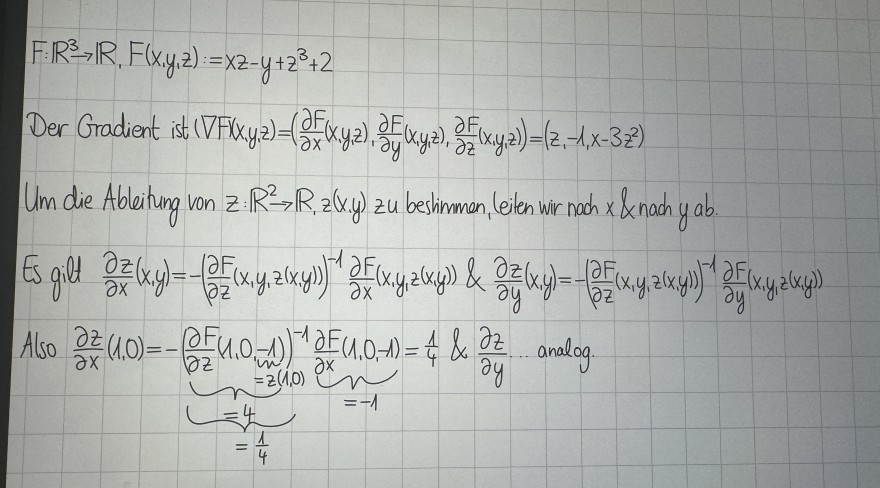 F:ℝ³→ℝ, F(x,y,z):=xz-y+z³+2
Der Gradient ist (∇F)(x,y,z)=(∂F/∂x(x,y,z), ∂F/∂y(x,y,z), ∂F/∂z(x,y,z))=(z,-1,x-3z²)
Um die Ableitung von z:ℝ²→ℝ, z(x,y) zu bestimmen, leiten wir nach x & nach y ab.
Es gilt ∂z/∂x(x,y)=-(∂F/∂z(x,y,z(x,y)))⁻¹ ∂F/∂x(x,y,z(x,y)) & ∂z/∂y(x,y)=-(∂F/∂z(x,y,z(x,y)))⁻¹ ∂F/∂y(x,y,z(x,y))
Also ∂z/∂x(1,0)=-(∂F/∂z(1,0,-1))⁻¹ ∂F/∂x(1,0,-1)=1/4 & ∂z/∂y ... analog.
=z(1,0)
=4 =-1
=1/4